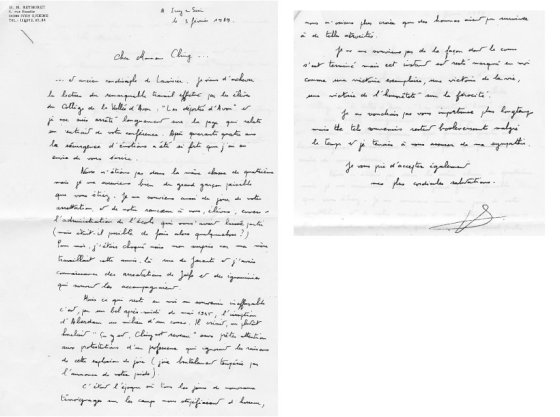 A Ivry sur Seine
le 3 février 1989.
Cher Monsieur Chimy ...
... et ancien condisciple de Lavoisier. Je viens d'achever
la lecture du remarquable travail effectué par les élèves
du Collège de la Vallée d'Avon. "Les déportés d'Avon" et
je me suis arrêté longuement sur la page qui relate
un extrait de votre conférence. Après quarante quatre ans
la résurgence d'émotions a été si fort que j'ai eu
envie de vous écrire.
Nous n'étions pas dans la même classe de quatrième
mais je me souviens bien du grand garçon paisible
que vous étiez. Je me souviens aussi du jour de votre
arrestation, et de notre rancoeur à nous, élèves, envers
l'administration de l'école qui vous avait laissé partir
(mais était-il possible de faire alors quelquechose ?)
Pour moi, j'étais choqué mais non surpris car ma mère
travaillait cette année là rue de et j'avais
connaissance des arrestations de Juifs et des ignominies
qui souvent les accompagnaient.
Mais ce qui reste en moi un souvenir ineffaçable
c'est, par un bel après-midi de mai 1945, l'irruption
d' au milieu d'un cours. Il criait, ou plutôt
hurlait "Ça y est, est revenu" sans prêter attention
aux protestations d'un professeur qui ignorait les raisons
de cette explosion de joie (joie brutalement tempérée par
l'annonce de votre poids).
C'était l'époque où tous les jours de nouveaux
témoignages sur les camps nous stupéfiaient d'horreur,
nous n'osions plus croire que des hommes aient pu survivre
à de telles atrocités.
Je ne me souviens pas de la façon dont le cours
s'est terminé mais cet instant est resté marqué en moi
comme une victoire exemplaire, une victoire de la vie,
une victoire de l'honnêteté sur la férocité.
Je ne voudrais pas vous importuner plus longtemps
mais de tels souvenirs restent bouleversants malgré
le temps et je tenais à vous assurer de ma sympathie.
Je vous prie d'accepter également
mes plus cordiales salutations.